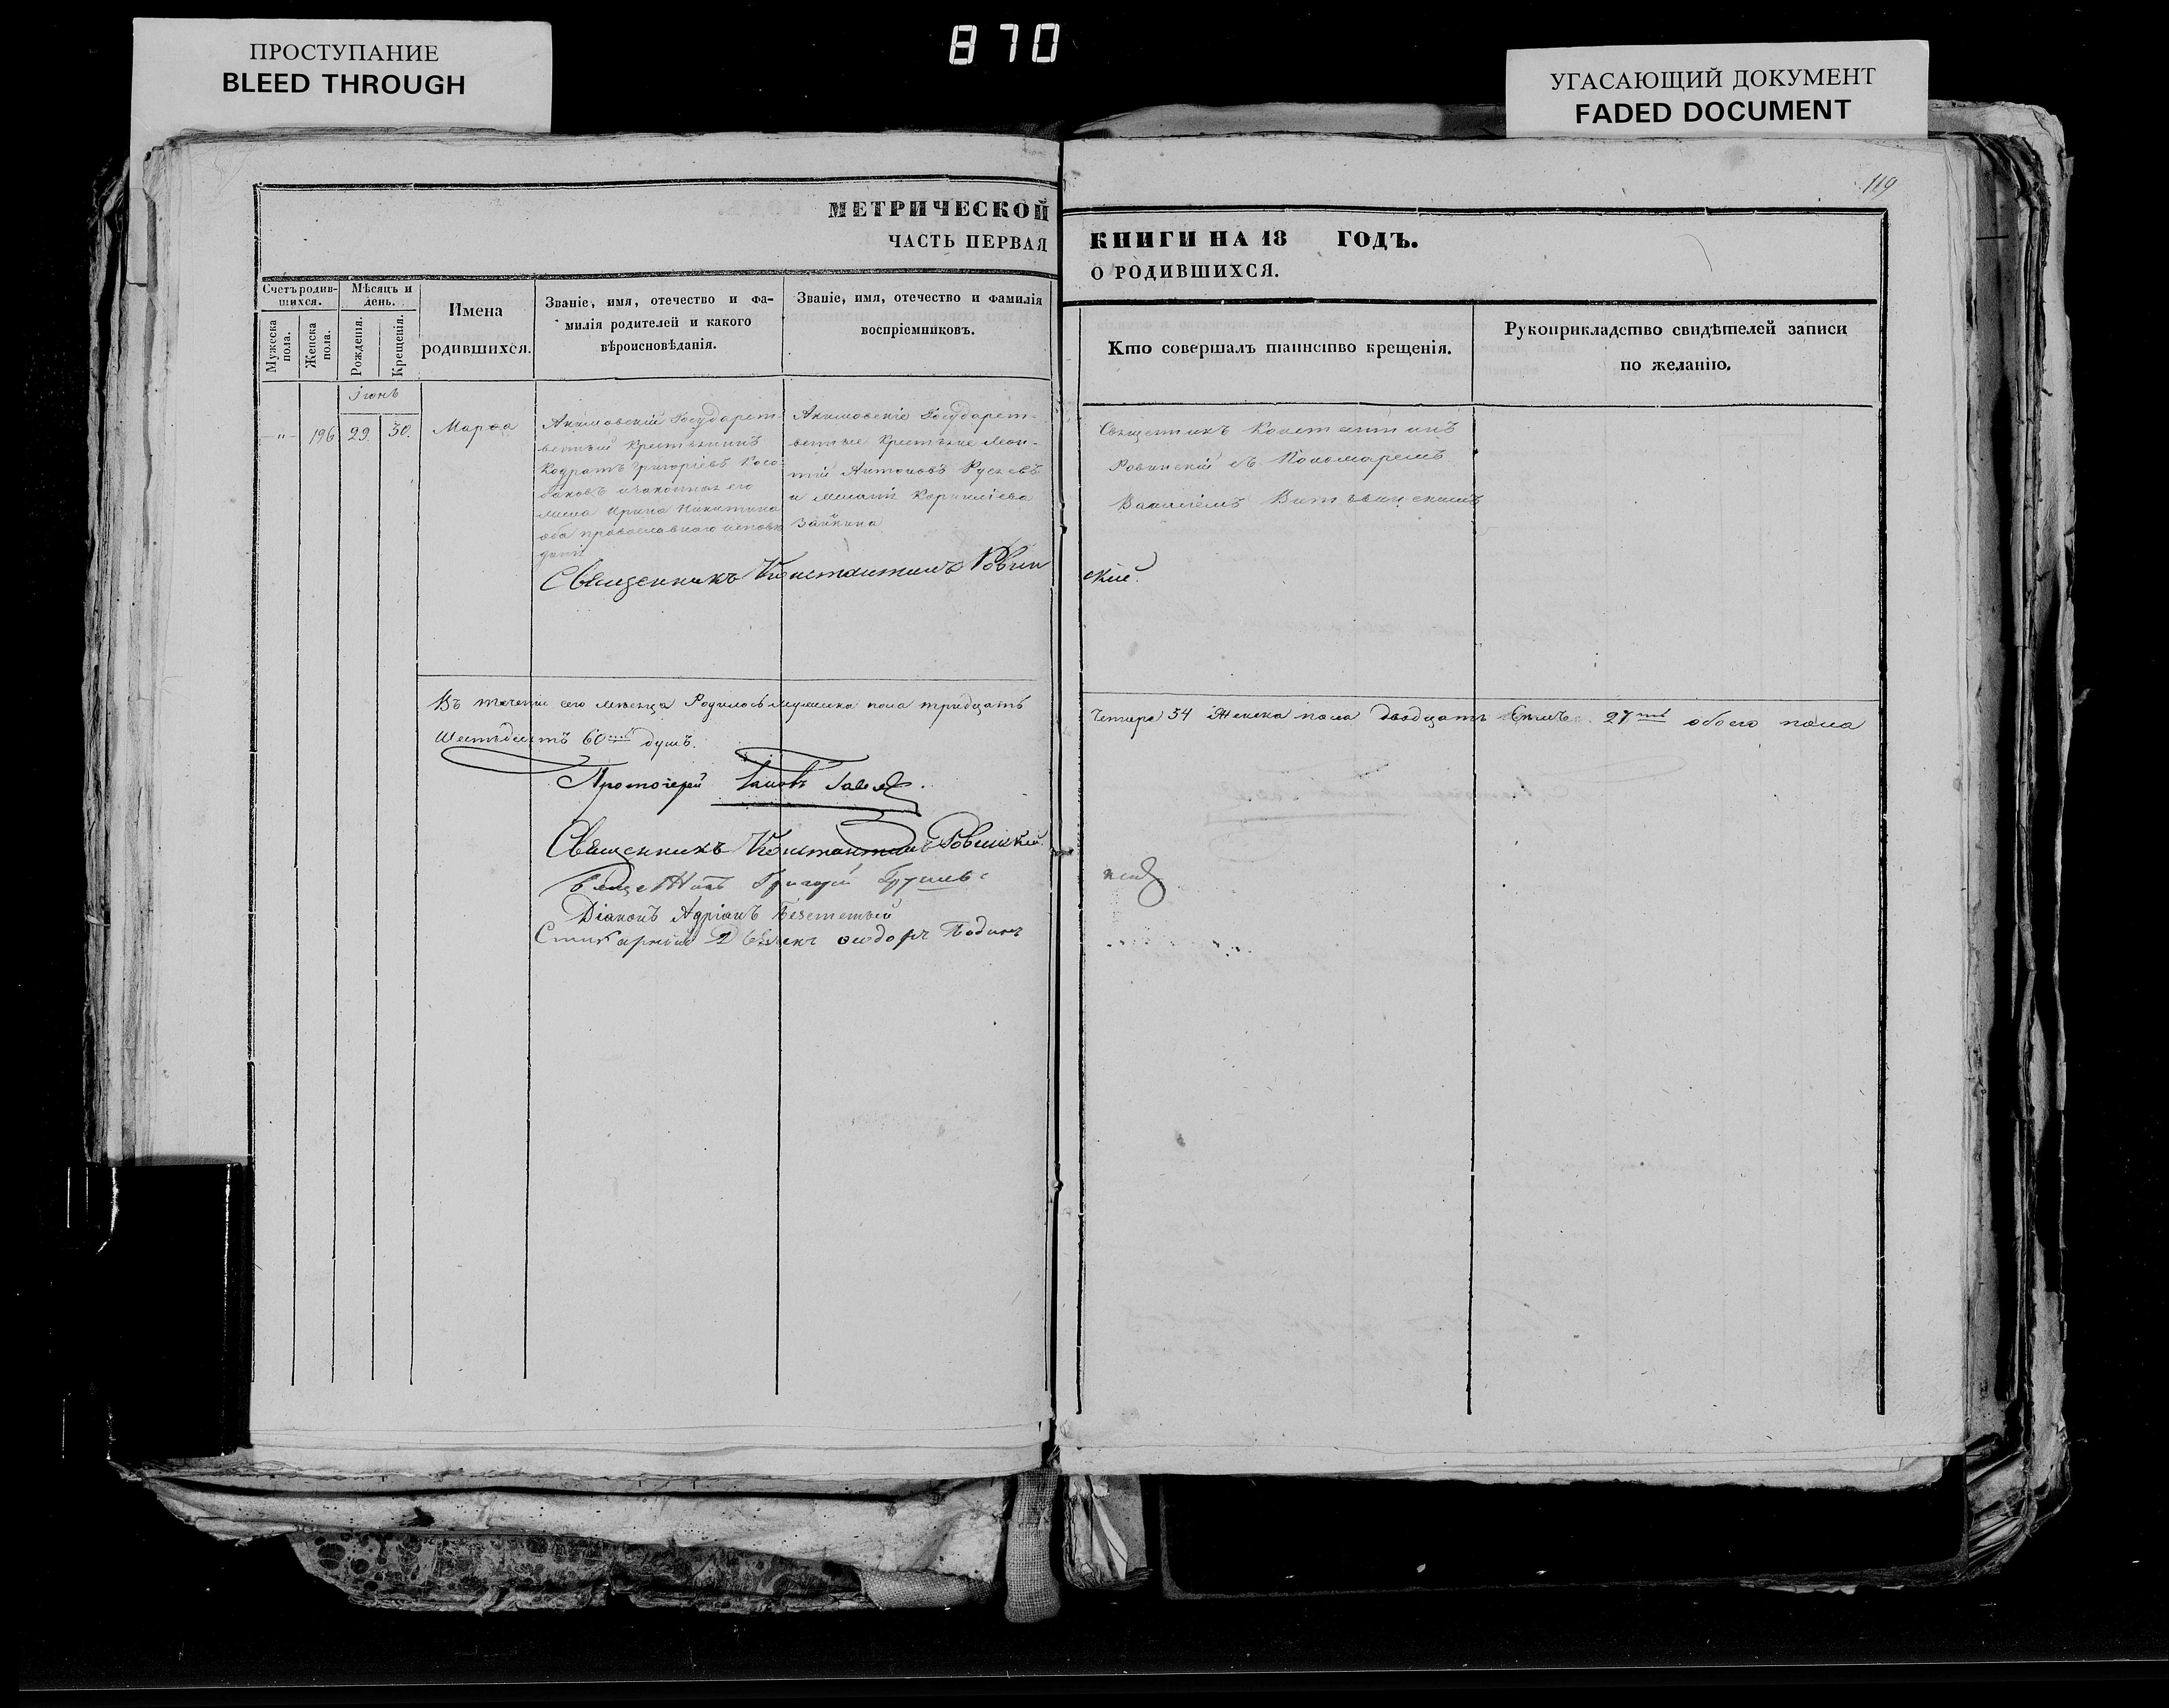 870
ПРОСТУПАНИЕ
BLEED THROUGH
УГАСАЮЩИЙ ДОКУМЕНТ
FADED DOCUMENT
119
МЕТРИЧЕСКОЙ
ЧАСТЬ ПЕРВАЯ
КНИГИ НА 18 ГОДЪ.
О РОДИВШИХСЯ.
Счетъ родив-
шихся.
Мужеска
пола.
Женска
пола.
Мѣсяцъ и
день.
Рожденія.
Крещенія.
Имена
родившихся.
Званіе, имя, отечество и фа-
милія родителей и какого
вѣроисповѣданія.
Званіе, имя, отечество и фамилія
воспріемниковъ.
Кто совершалъ таинство крещенія.
Рукоприкладство свидѣтелей записи
по желанію.
Іюнь
-"- 196 29. 30. Марѳа
Акимовскій Государст-
венный Крестьянинъ
Кодратъ Григоріевъ Косо-
лаповъ и законная его
жена Ирина Никитина
оба православнаго исповѣ
данія
Акимовскіе Государст-
венные Крестьяне Леон-
тій Антоновъ
и Меланія Корниліева
Зайкина
Священникъ Константинъ
Ровинскій съ Пономаремъ
Василіемъ
Священникъ Константинъ Ровин
скій.
Въ теченіи сего мѣсяца Родилось мужеска пола тридцать
Четыре 34 Женска пола двадцать 27 обоего пола
Шестьдесятъ 60 душъ.
Протоіерей
Священникъ Константинъ Ровинскій.
Григорій
Діаконъ Адріанъ